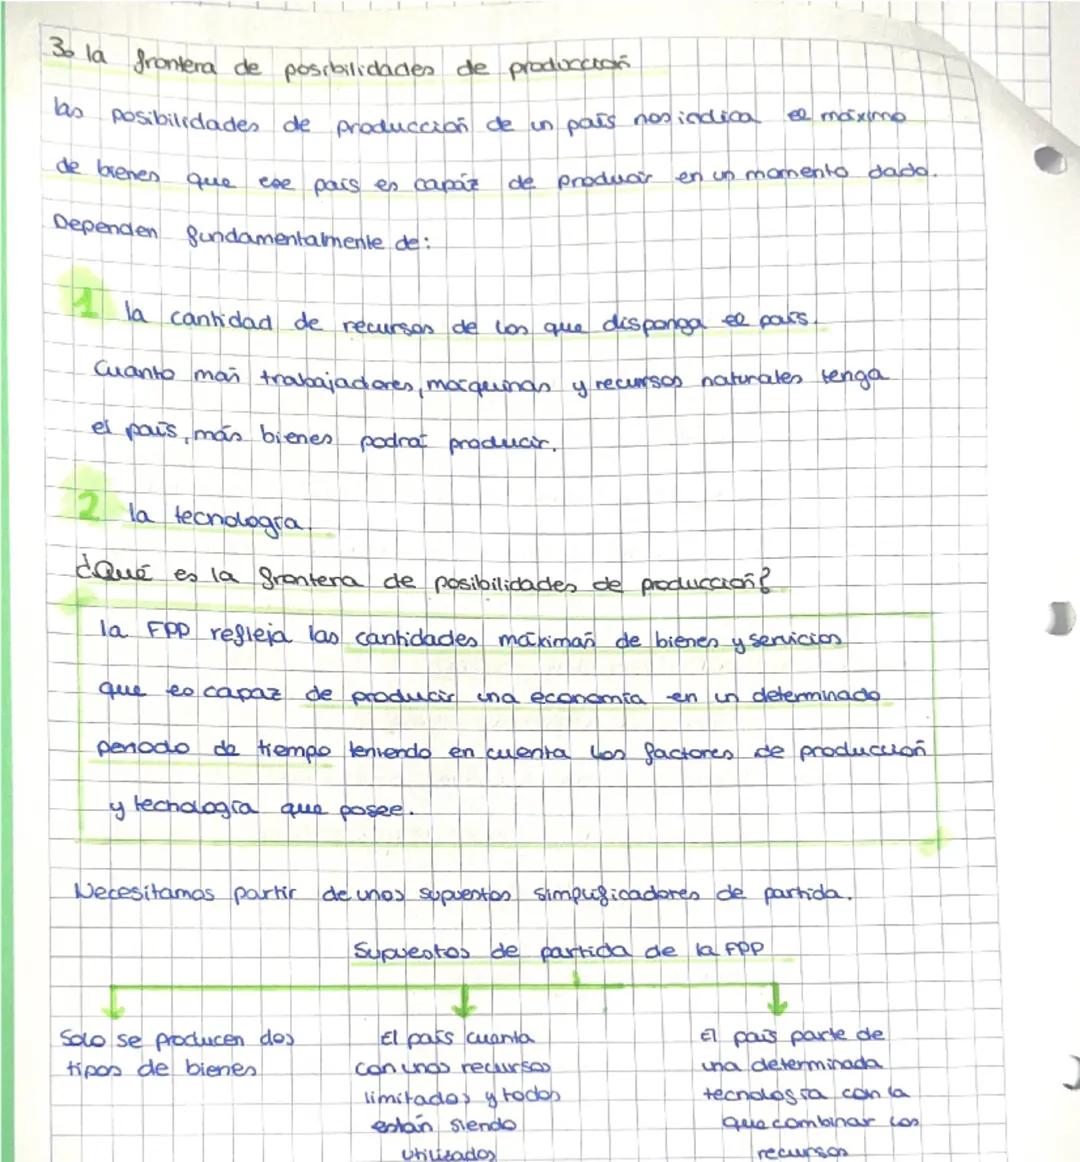 3. la frontera de posibilidades de producción
las posibilidades de producción de un país nos indica el máximo
de bienes que ese país es capáz de producir en un momento dado.
Dependen fundamentalmente de:
1 la cantidad de recursos de los que disponga el país.
Cuanto más trabajadores, máquinas y recursos naturales tenga
el país, más bienes podrá producir.
2 la tecnología.
¿Qué es la frontera de posibilidades de producción?
la FPP refleja las cantidades máximas de bienes y servicios
que es capaz de producir una economía en un determinado
periodo de tiempo teniendo en cuenta los factores de producción
y tecnología que posee.
Necesitamos partir de unos supuestos simplificadores de partida.
Supuestos de partida de la FPP
Solo se producen dos
tipos de bienes
El país cuanta
con unos recursos
limitados y todos
están siendo
utilizados
El país parte de
una determinada
tecnología con la
que combinar los
recursos